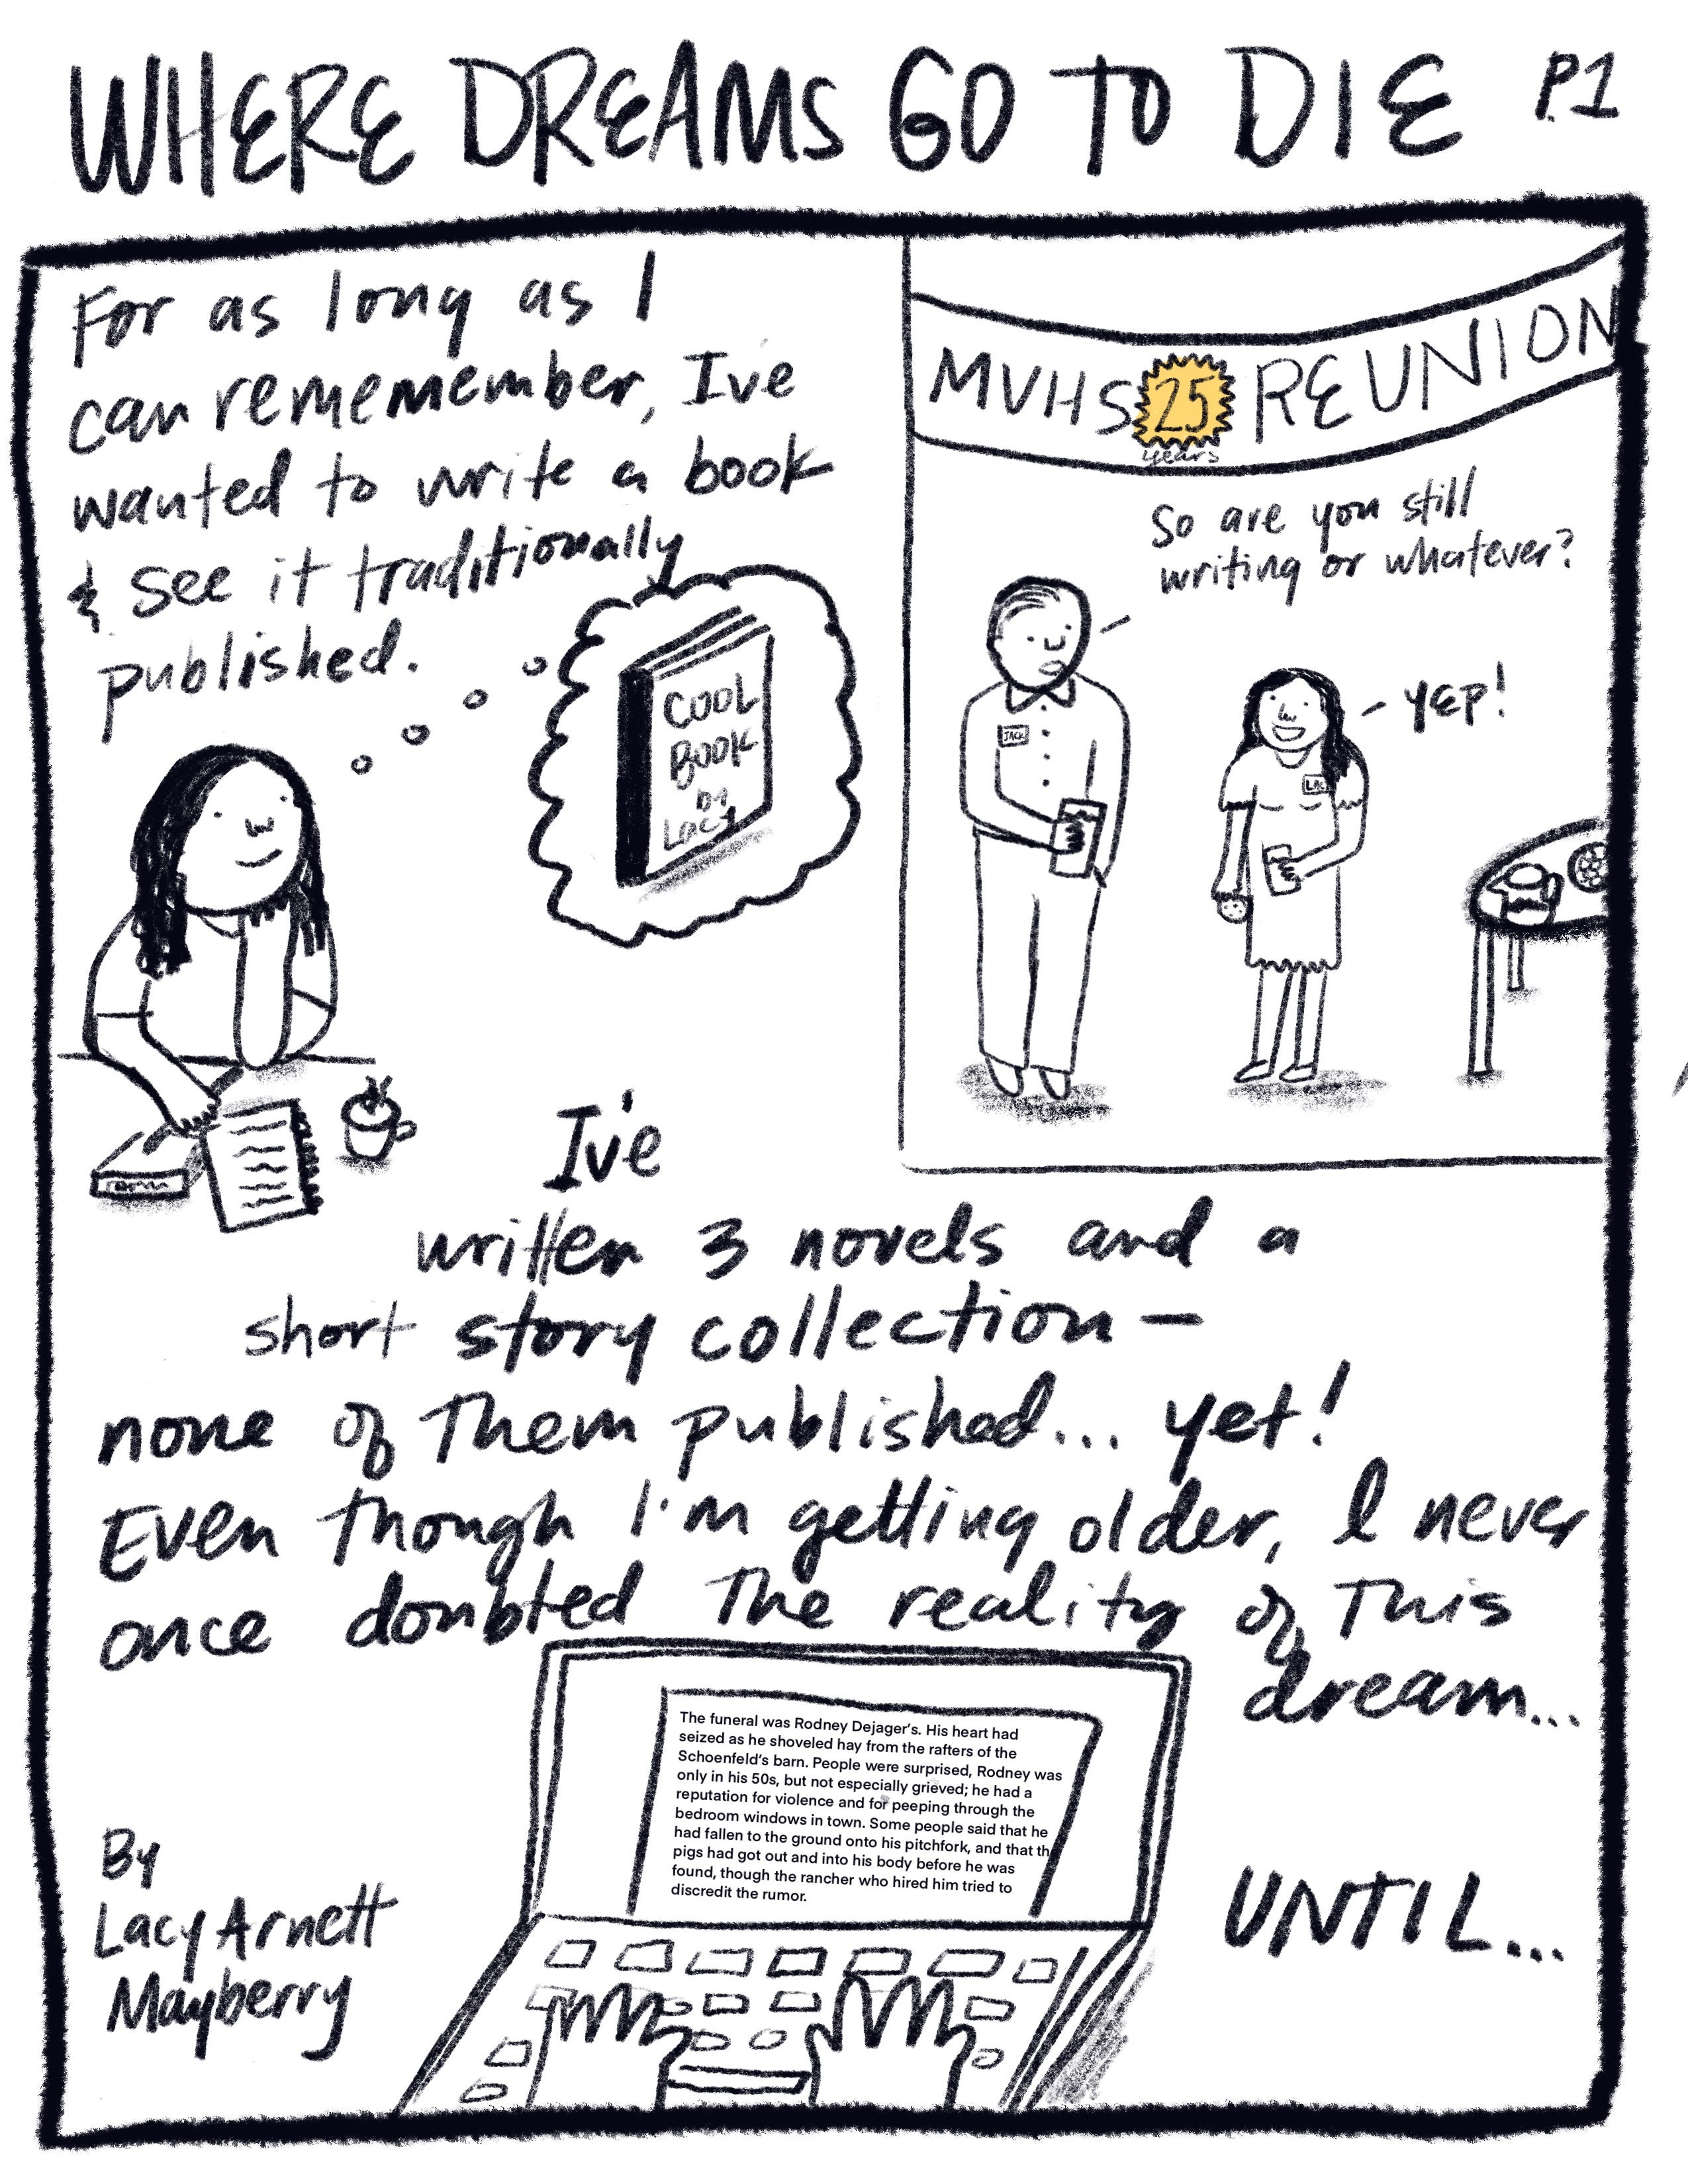 WHERE DREAMS GO TO DIE P.1
For as long as I
can rememember, I've
wanted to write a book
& see it traditionally
published.
COOL
BOOK
by
Lacy
MVHS 25 REUNION
years
So are you still
writing or whatever?
YEP!
JACK
I've
written 3 novels and a
short story collection—
none of them published... yet!
Even though I'm getting older, I never
once doubted the reality of this
dream...
The funeral was Rodney Dejager's. His heart had
seized as he shoveled hay from the rafters of the
Schoenfeld's barn. People were surprised, Rodney was
only in his 50s, but not especially grieved; he had a
reputation for violence and for peeping through the
bedroom windows in town. Some people said that he
had fallen to the ground onto his pitchfork, and that th
pigs had got out and into his body before he was
found, though the rancher who hired him tried to
discredit the rumor.
By
Lacy Arnett
Mayberry
UNTIL...